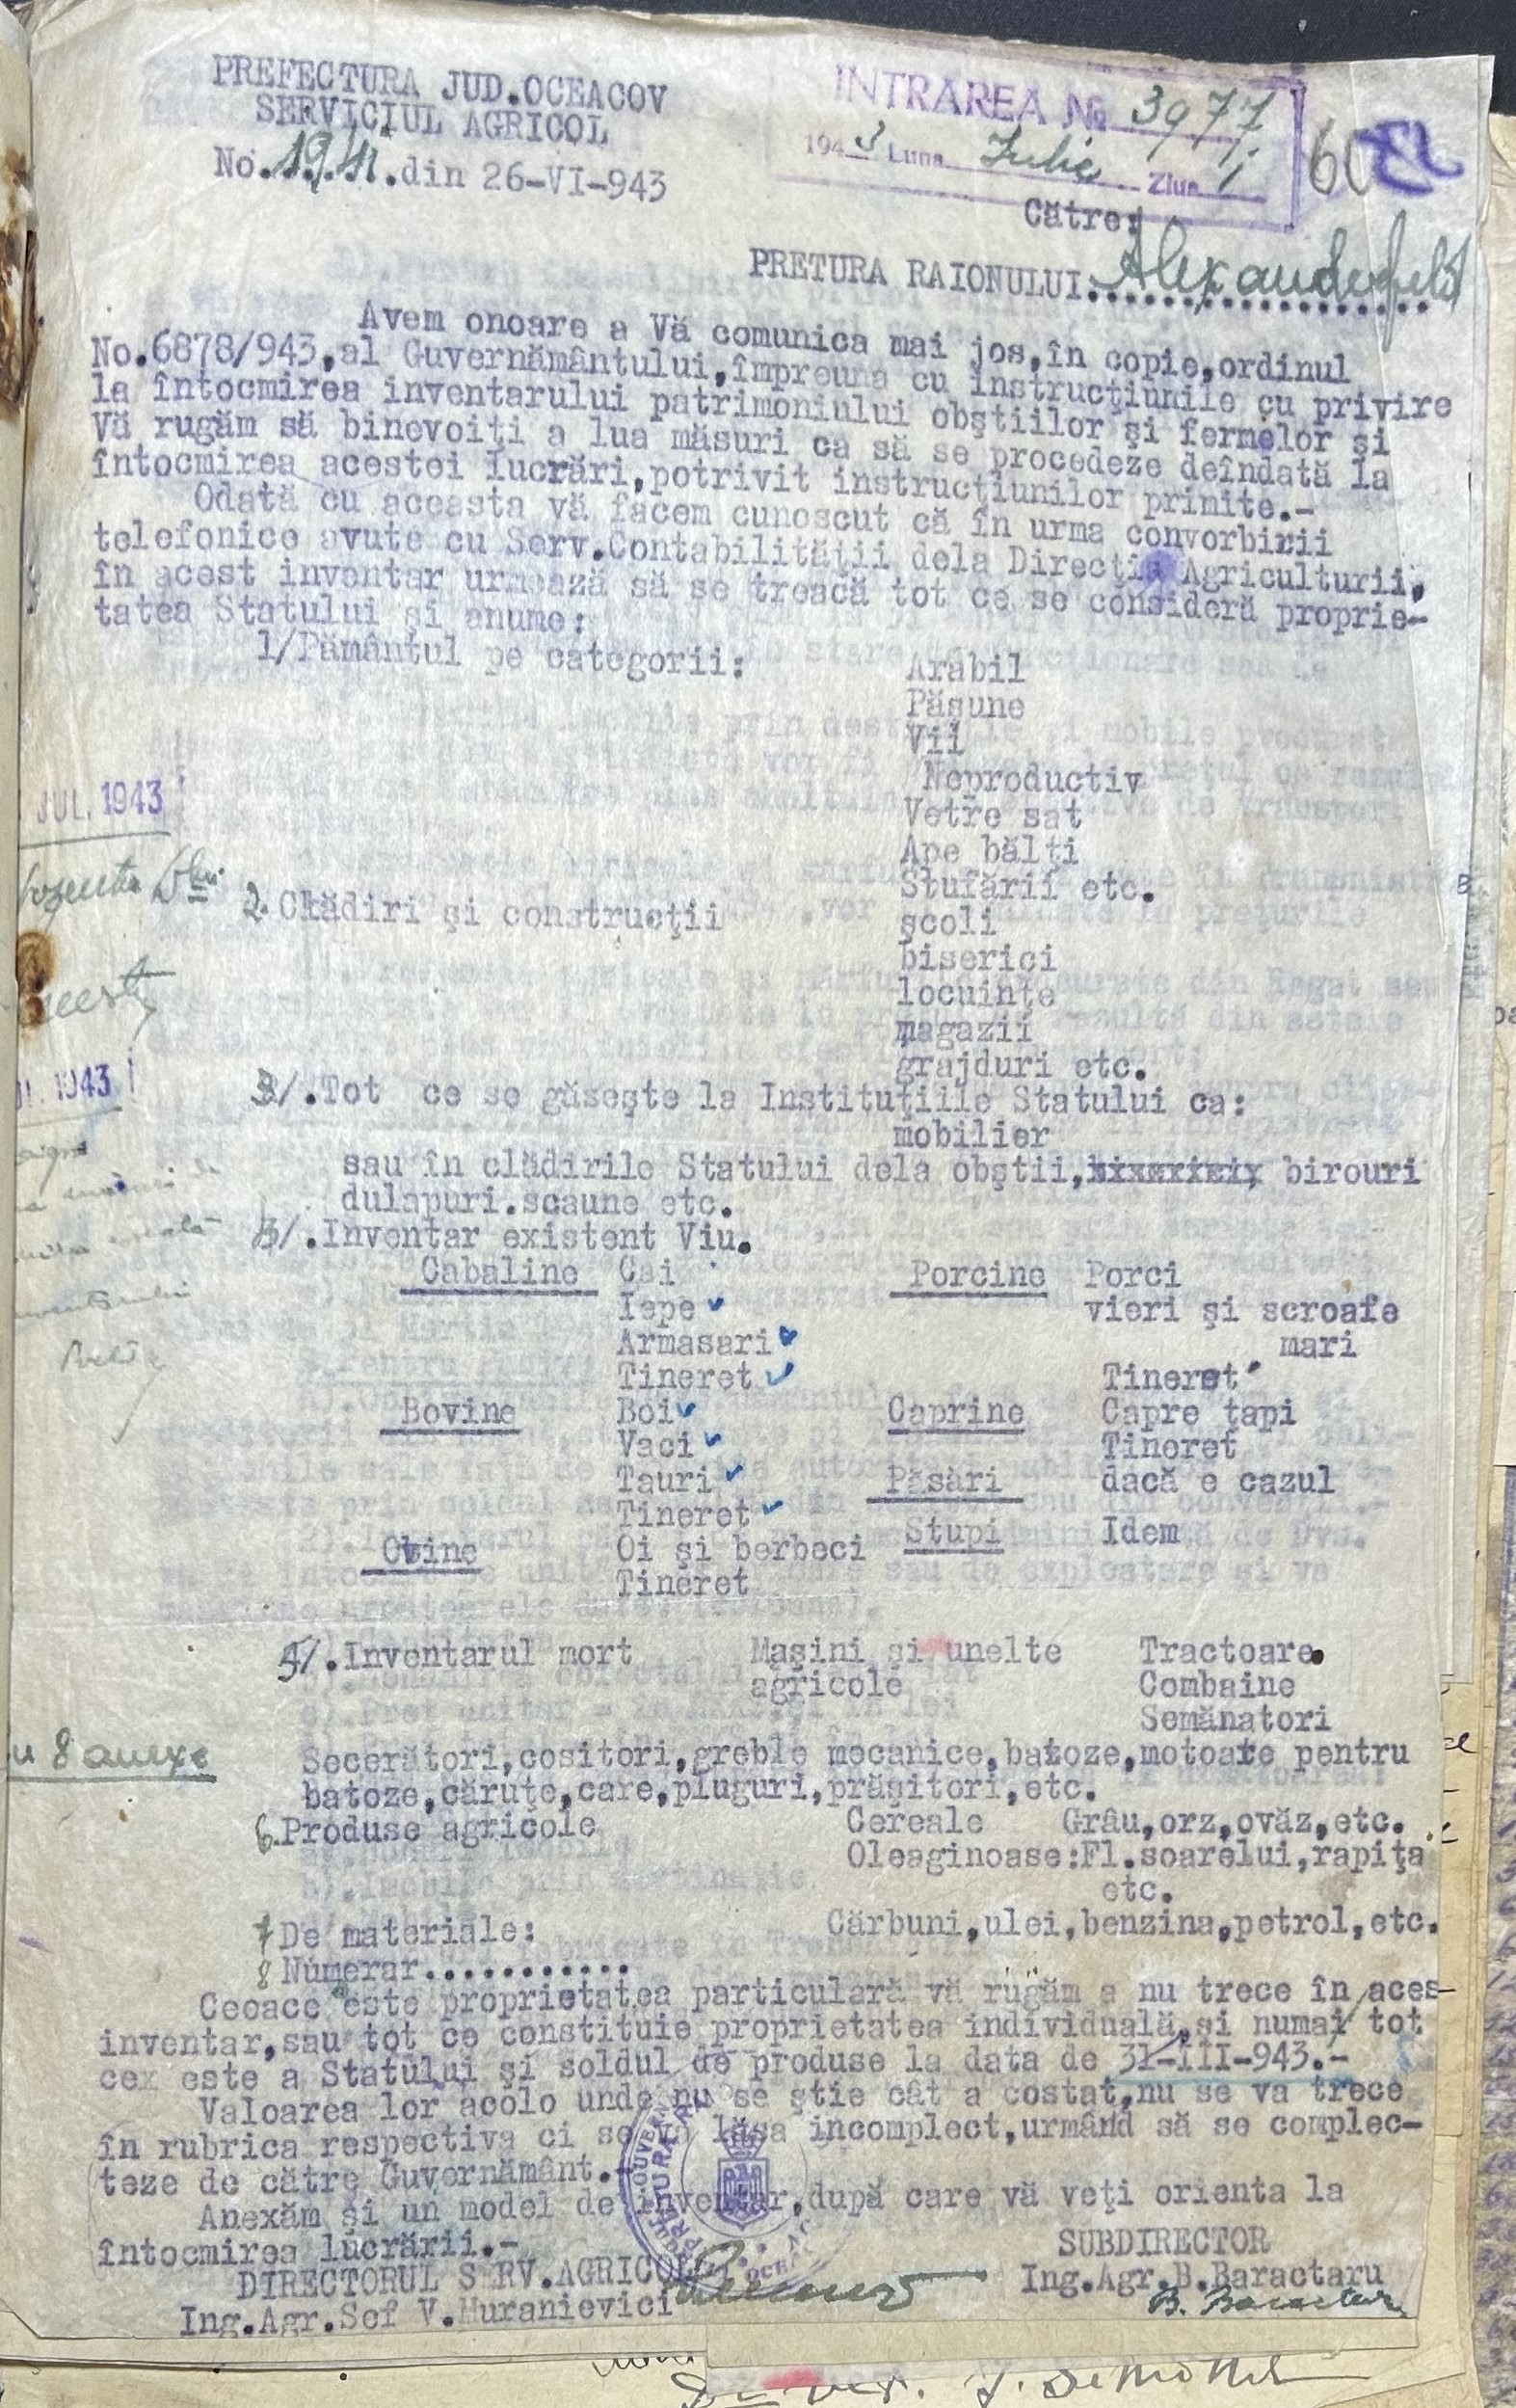 PREFECTURA JUD.OCEACOV
SERVICIUL AGRICOL
No. din 26-VI-943
INTRAREA № 3977
1943 Luna Iulie Ziua 1
60
Către:
PRETURA RAIONULUI:Alexanderfeld
Avem onoare a Vă comunica mai jos,în copie,ordinul
No.6878/943,al Guvernământului,împreuna cu instrucţiunile cu privire
la întocmirea inventarului patrimoniului obştiilor şi fermelor şi
Vă rugăm să binevoiţi a lua măsuri ca să se procedeze deîndată la
întocmirea acestei lucrări,potrivit instrucţiunilor primite.-
Odată cu aceasta vă facem cunoscut că în urma convorbirii
telefonice avute cu Serv.Contabilităţii dela Direcţia Agriculturii,
în acest inventar urmează să se treacă tot ce se consideră proprie-
tatea Statului şi anume:
1/Pământul pe categorii:
Arabil
Păşune
Vii
Neproductiv
Vetre sat
Ape bălţi
Stufării etc.
2. Clădiri şi construcţii
şcoli
biserici
locuinţe
magazii
grajduri etc.
3/.Tot ce se găseşte la Instituţiile Statului ca:
mobilier
sau în clădirile Statului dela obştii, birouri
dulapuri.scaune etc.
4/.Inventar existent Viu.
Cabaline Cai Porcine Porci
Iepe vieri şi scroafe
Armasari mari
Tineret Tineret
Bovine Boi Caprine Capre ţapi
Vaci Tineret
Tauri Păsări dacă e cazul
Tineret
Stupi Idem
Ovine Oi şi berbeci
Tineret
5/.Inventarul mort Maşini şi unelte Tractoare.
agricole Combaine
Semănatori
Secerători,cositori,greble mecanice,batoze,motoare pentru
batoze,căruţe,care,pluguri,prăşitori,etc.
6.Produse agricole Cereale Grâu,orz,ovăz,etc.
Oleaginoase:Fl.soarelui,rapiţa
etc.
7 De materiale: Cărbuni,ulei,benzina,petrol,etc.
8 Numerar...........
Ceeace este proprietatea particulară vă rugăm a nu trece în aces-
inventar,sau tot ce constituie proprietatea individuală,şi numai tot
ce este a Statului şi soldul de produse la data de 31-III-943.-
Valoarea lor acolo unde nu se ştie cât a costat,nu se va trece
în rubrica respectiva ci se va lăsa incomplect,urmând să se complec-
teze de către Guvernământ.-
Anexăm şi un model de inventar,după care vă veţi orienta la
întocmirea lucrării.-
DIRECTORUL SERV.AGRICOL
Ing.Agr.Sef V.Huranievici
SUBDIRECTOR
Ing.Agr.B.Baractaru
B. Baractaru
JUL.1943
1943
8 anexe